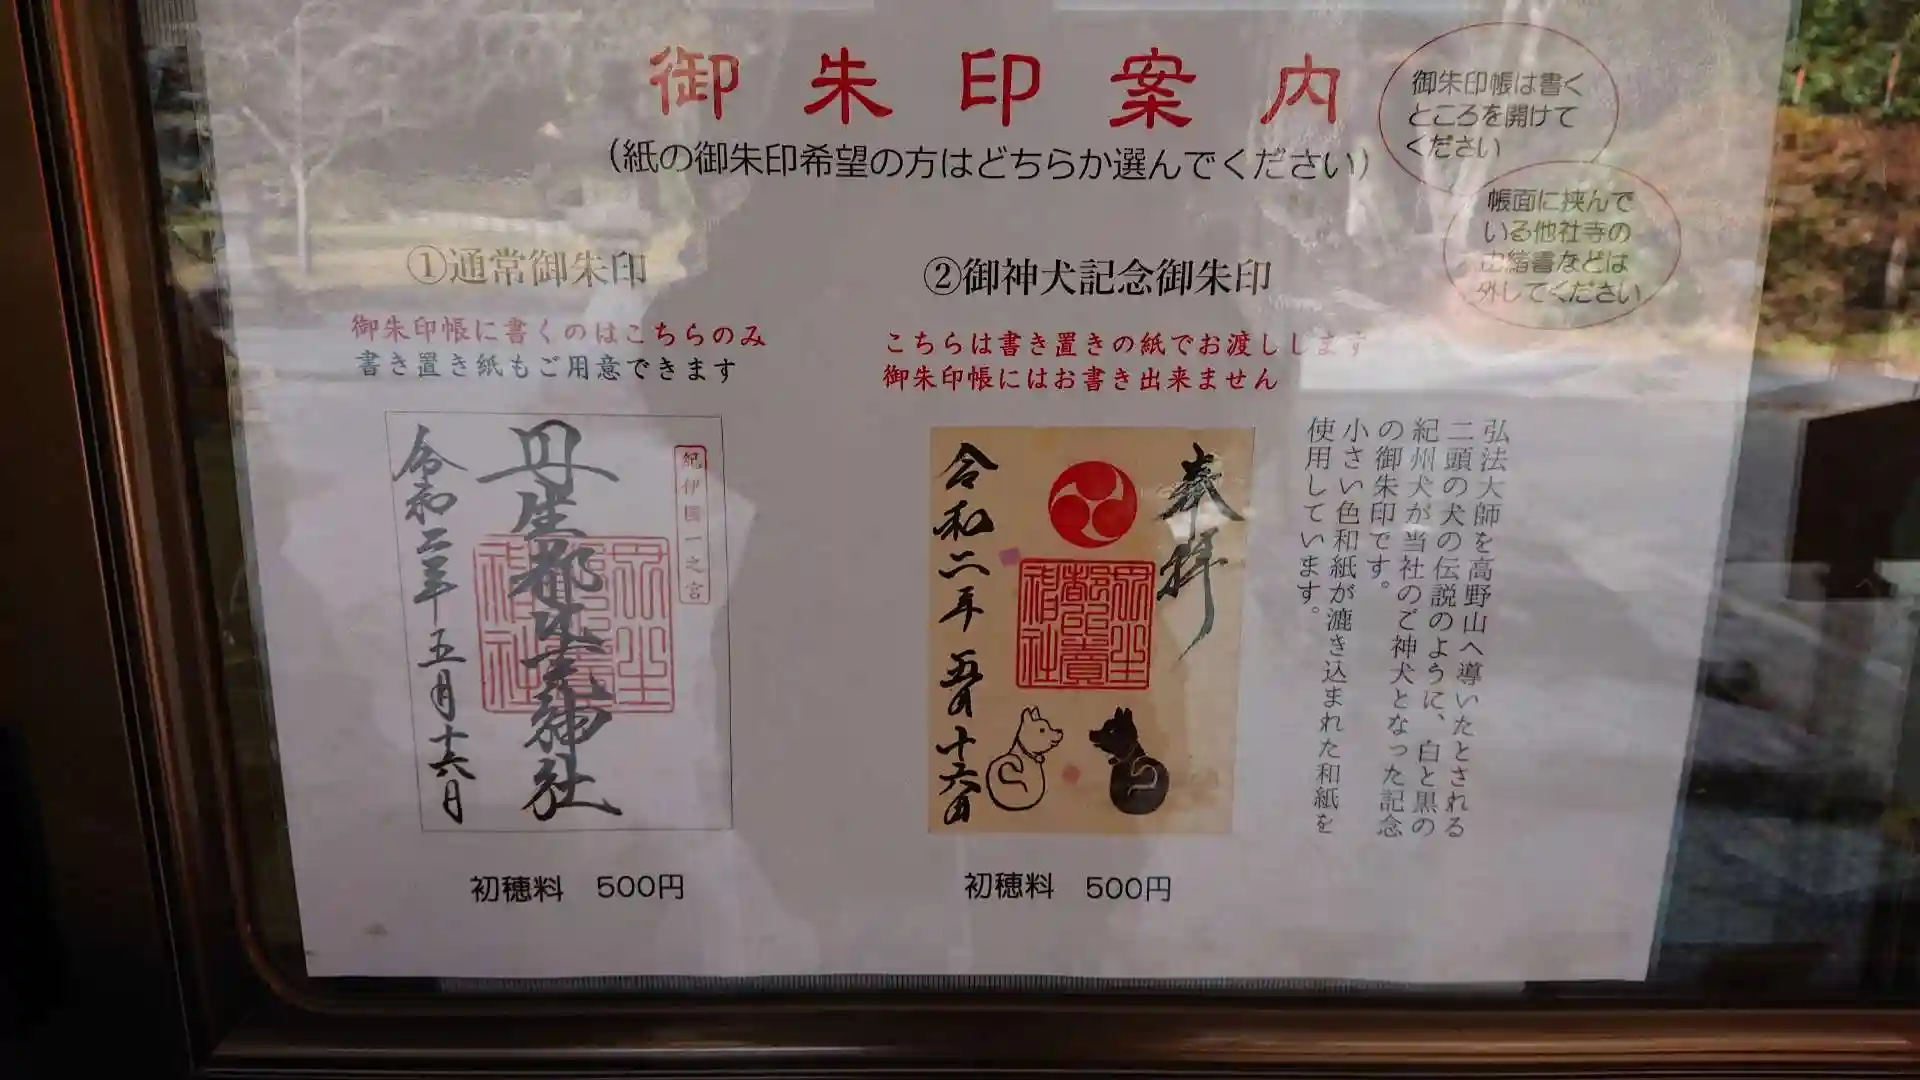 御朱印案内
（紙の御朱印希望の方はどちらか選んでください）
御朱印帳は書く
ところを開けて
ください
帳面に挟んで
いる他社寺の
由緒書などは
外してください
①通常御朱印
御朱印帳に書くのはこちらのみ
書き置き紙もご用意できます
紀伊國一之宮
丹生都比売神社
令和二年五月十六日
初穂料 500円
②御神犬記念御朱印
こちらは書き置きの紙でお渡しします
御朱印帳にはお書き出来ません
奉拝
令和二年五月十六日
初穂料 500円
弘法大師を高野山へ導いたとされる
二頭の犬の伝説のように、白と黒の
紀州犬が当社のご神犬となった記念
の御朱印です。
小さい色和紙が漉き込まれた和紙を
使用しています。